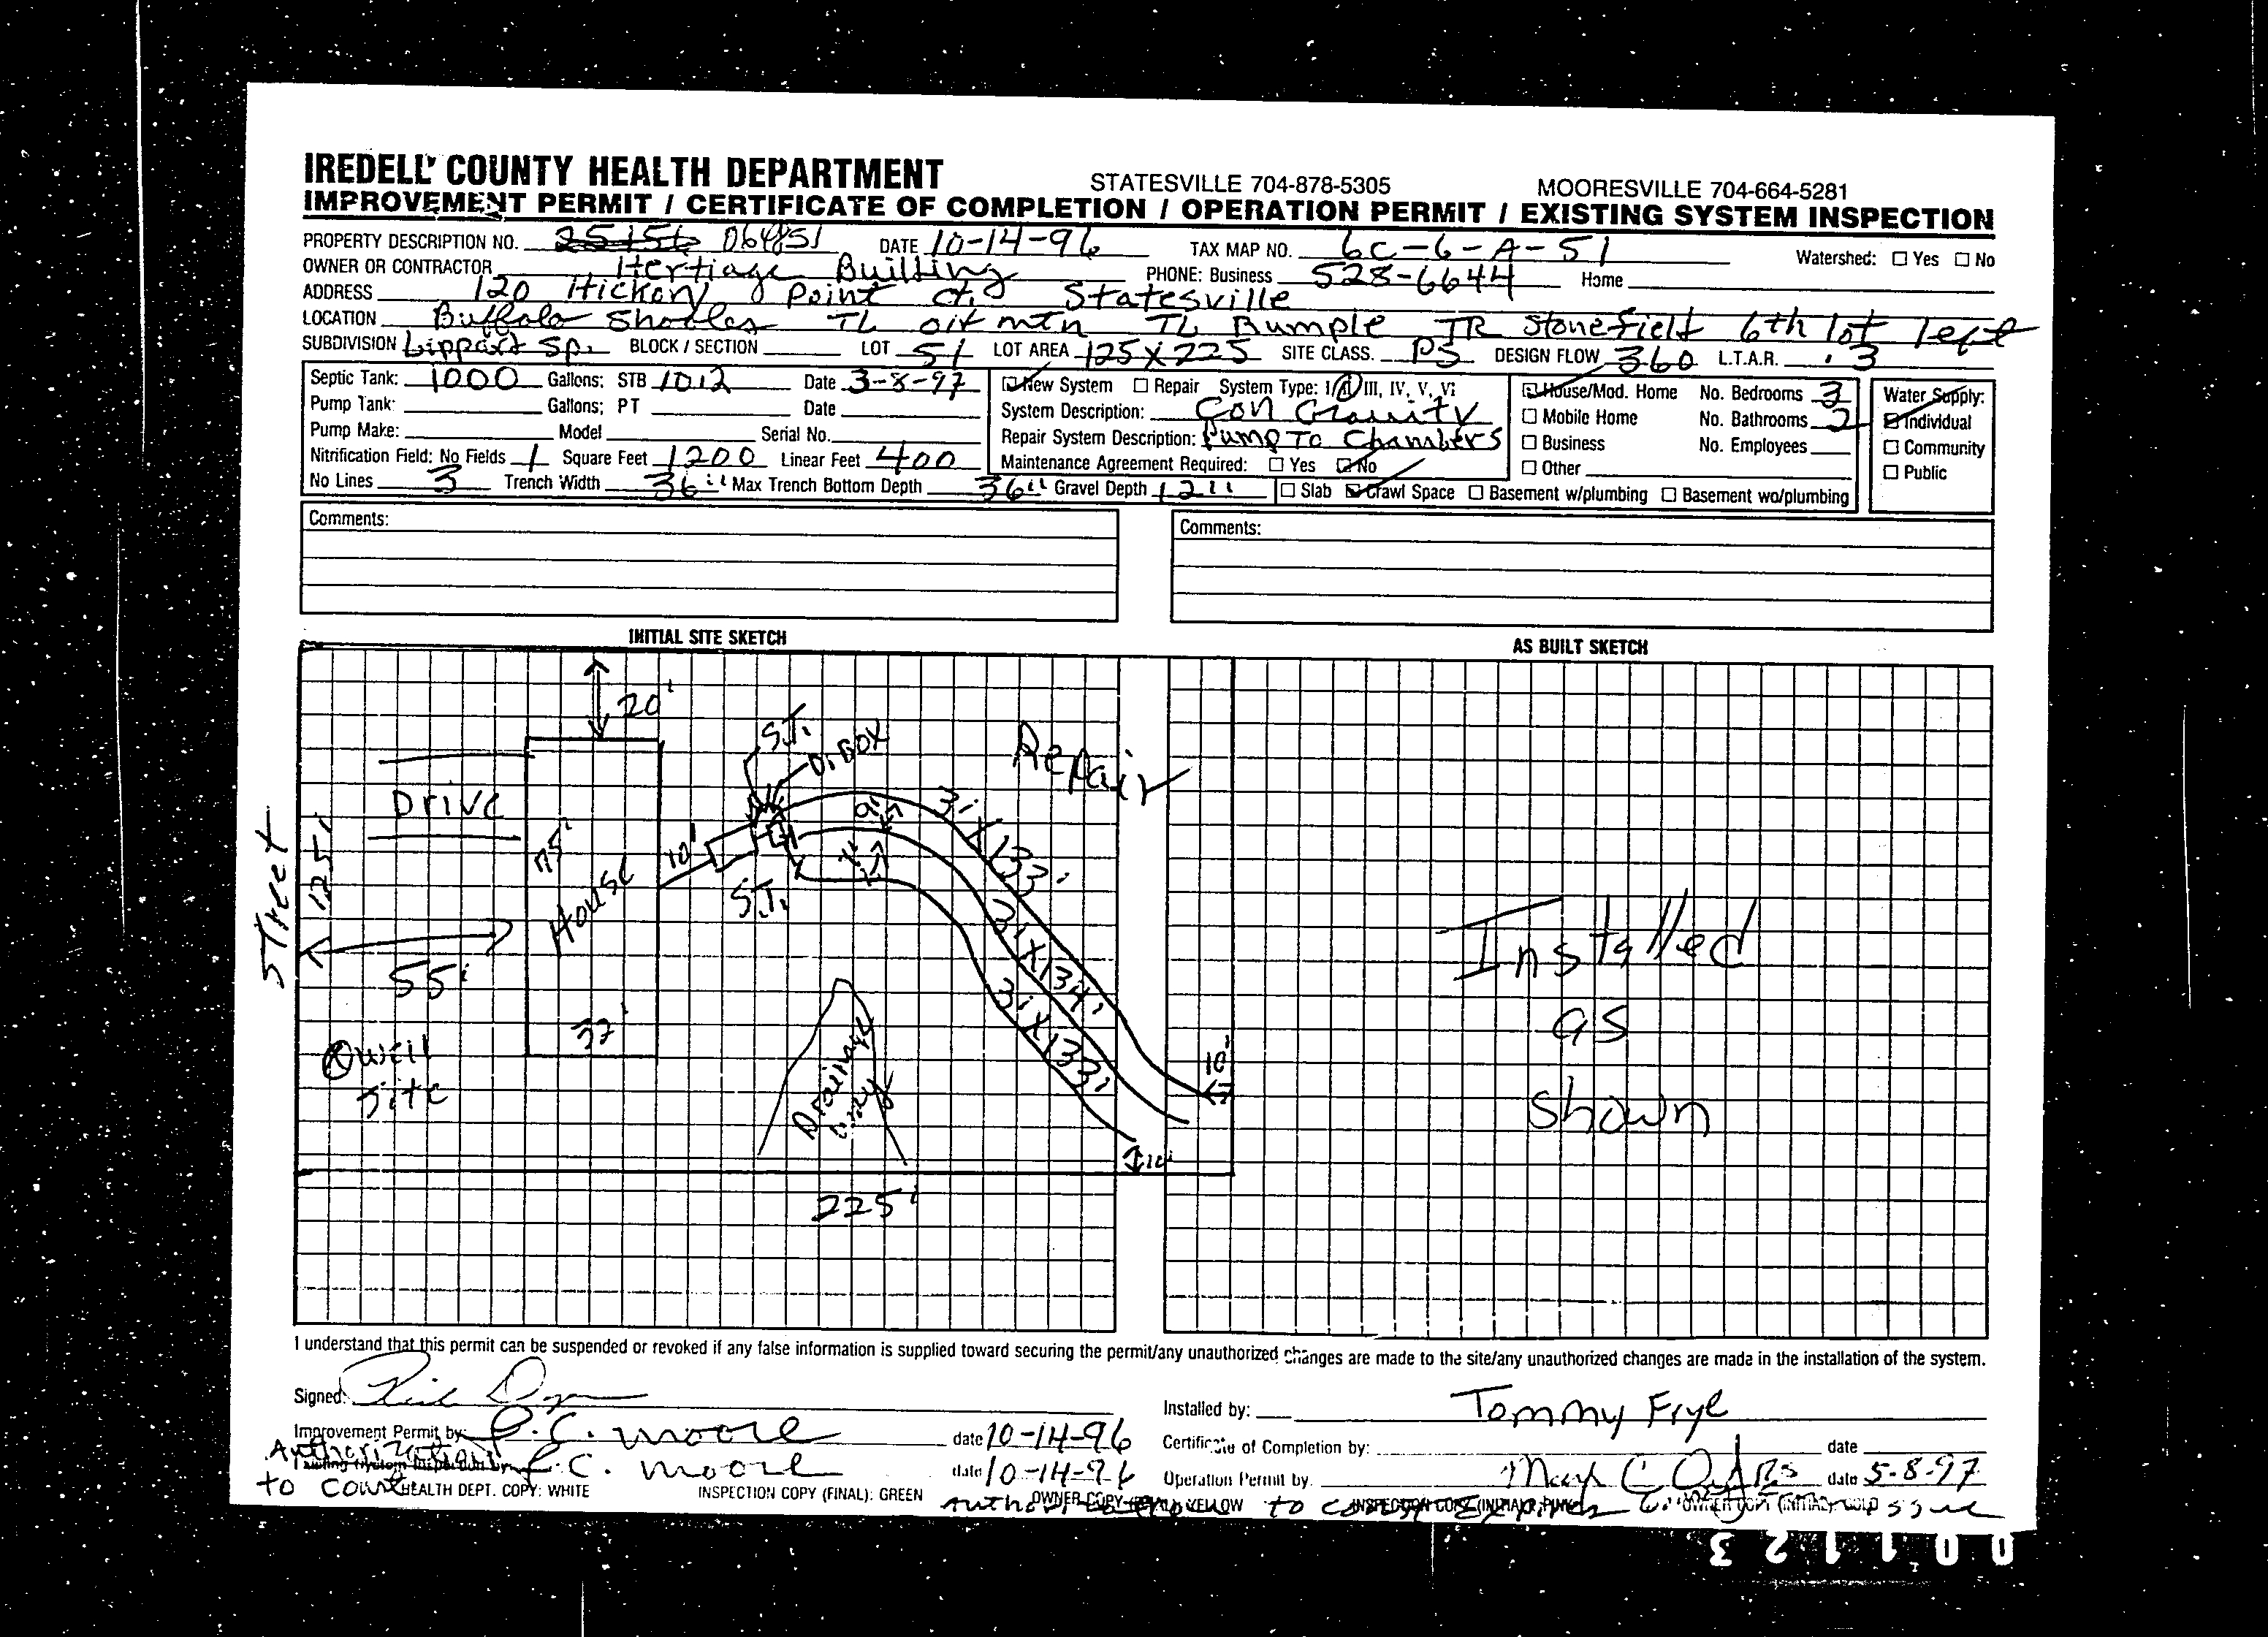 IREDELL COUNTY HEALTH DEPARTMENT STATESVILLE 704-878-5305 MOORESVILLE 704-664-5281
IMPROVEMENT PERMIT / CERTIFICATE OF COMPLETION / OPERATION PERMIT / EXISTING SYSTEM INSPECTION
PROPERTY DESCRIPTION NO. 064851 DATE 10-14-96 TAX MAP NO. 6C-6-A-51 Watershed: ☐ Yes ☐ No
OWNER OR CONTRACTOR Hertiage Builling PHONE: Business 528-6644 Home
ADDRESS 120 Hickory Point Ct. Statesville
LOCATION Buffalo Shoales TL oit mtn TL Rumple TR Stonefield 6th lot left
SUBDIVISION Lippard Sp. BLOCK / SECTION LOT 51 LOT AREA 125 X 225 SITE CLASS. PS DESIGN FLOW 360 L.T.A.R. .3
Septic Tank: 1000 Gallons: STB 1012 Date 3-8-97 ☑ New System ☐ Repair System Type: I, II, III, IV, V, VI ☑ House/Mod. Home No. Bedrooms 3 Water Supply:
Pump Tank: Gallons; PT Date System Description: Con Gravity ☐ Mobile Home No. Bathrooms 2 ☑ Individual
Pump Make: Model Serial No. Repair System Description: Pump To Chambers ☐ Business No. Employees ☐ Community
Nitrification Field: No Fields 1 Square Feet 1200 Linear Feet 400 Maintenance Agreement Required: ☐ Yes ☑ No ☐ Other ☐ Public
No Lines 3 Trench Width 36" Max Trench Bottom Depth 36" Gravel Depth 12" ☐ Slab ☑ Crawl Space ☐ Basement w/plumbing ☐ Basement wo/plumbing
Comments: Comments:
INITIAL SITE SKETCH AS BUILT SKETCH
20'
S.T.
D.Box
Repair
Drive
Street
125'
75'
House
10'
S.T.
9'
3' X 133'
3' X 134'
3' X 133'
55'
32'
Well
Site
Drainage
Way
10'
10'
225'
Installed
as
Shown
I understand that this permit can be suspended or revoked if any false information is supplied toward securing the permit/any unauthorized changes are made to the site/any unauthorized changes are made in the installation of the system.
Signed: Installed by: Tommy Frye
Improvement Permit by: P.C. Moore date 10-14-96 Certificate of Completion by: date
Authorization P.C. Moore date 10-14-96 Operation Permit by date 5-8-97
to Const HEALTH DEPT. COPY: WHITE INSPECTION COPY (FINAL): GREEN OWNER COPY YELLOW INSPECTION COPY (INITIAL): PINK OWNER COPY (INITIAL): GOLD
00123